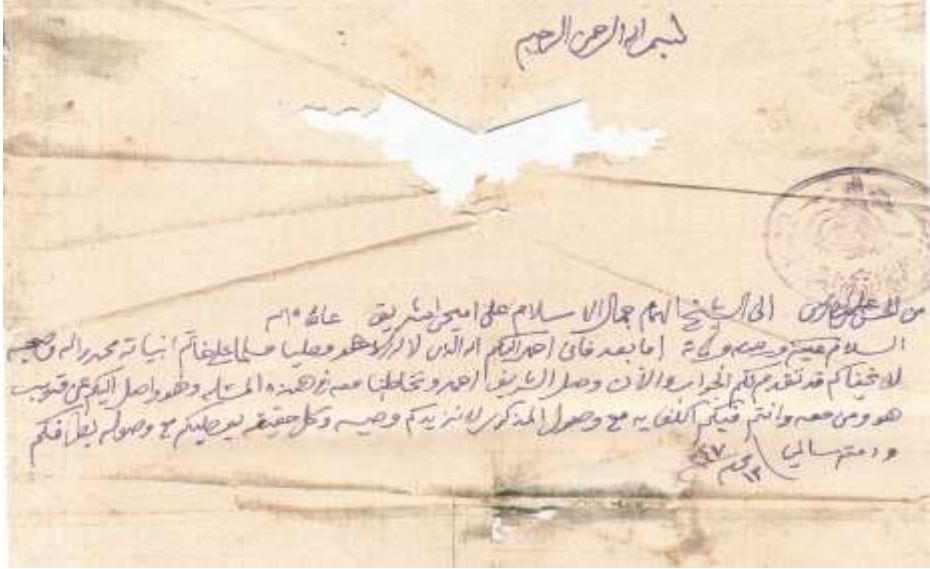 بسم الله الرحمن الرحيم
من إلى الشيخ الهمام جمال الاسلام على امبحر امشريف عافاه الله
السلام عليكم ورحمته وبركاته أما بعد فاني احمد اليكم الله الذي لا اله الا هو ومصليا ومسلما على خاتم انبيائه محمد واله وصحبه
لا يخفاكم قد تقدم لكم الجواب والآن وصل الشريف احمد وتخاطبنا معه في هذه المسئله وهو واصل اليكم عن قريب
هو ومن معه وانتم فيكم الكفايه مع وصول المذكور لا نزيدكم وصيه وكل حقيقه يوصليكم مع وصوله لطرفكم
ودمتم سالمين محرم